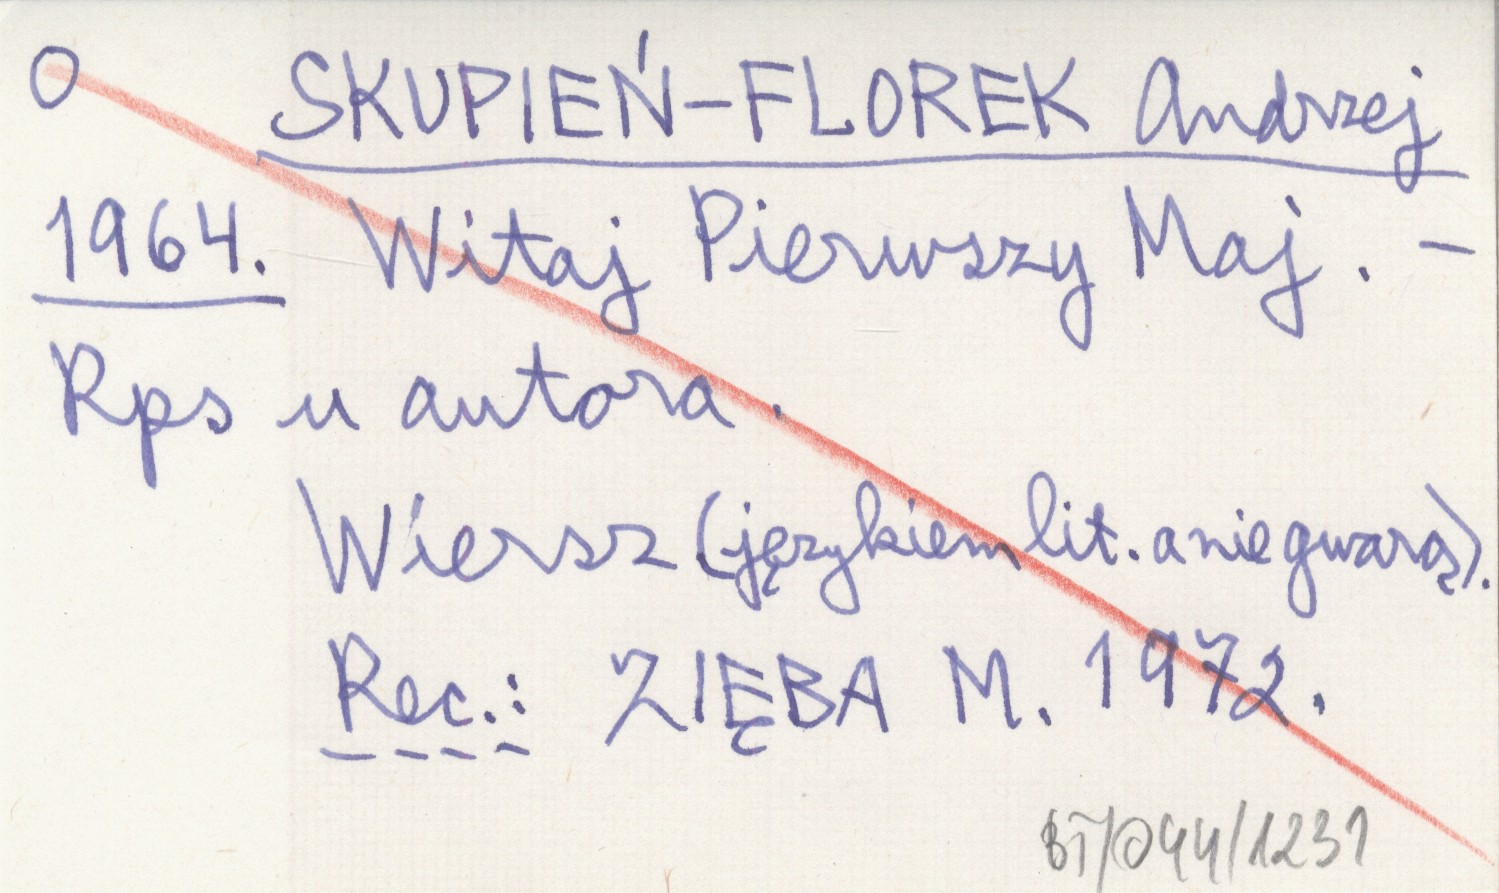 O SKUPIEŃ-FLOREK Andrzej
1964. Witaj Pierwszy Maj. -
Rps u autora.
Wiersz (językiem lit. a nie gwarą).
Rec.: ZIĘBA M. 1972.
BT/044/1231